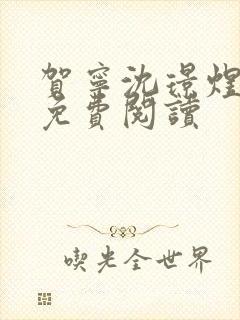 賀寧沈璟煌
免費閱讀
喫光全世界